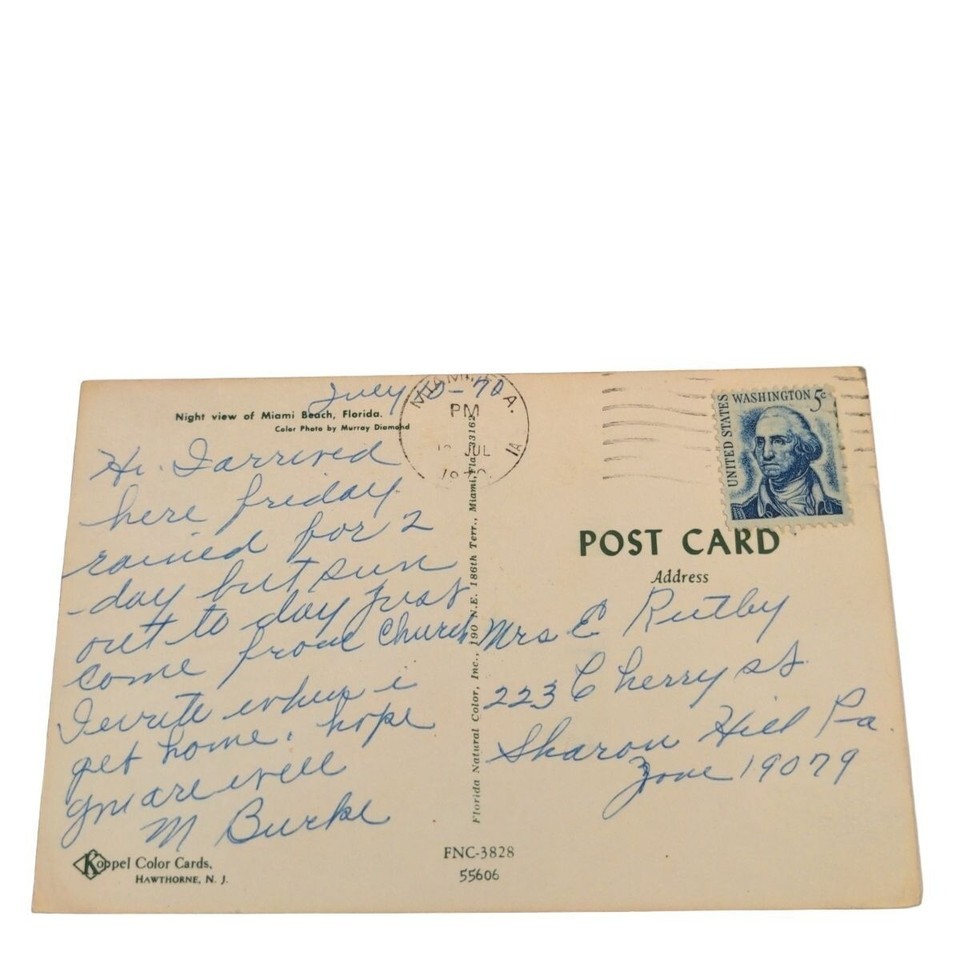 July -70
MIAMI, LA.
PM
JUL
1A
Night view of Miami Beach, Florida.
Color Photo by Murray Diamond
Hi. I arrived
here friday.
rained for 2
-day but sun
out to day just
come from Church
I write when i
get home. hope
you are well
M Burke
Koppel Color Cards,
HAWTHORNE, N. J.
Florida Natural Color, Inc., 190 N.E. 186th Terr., Miami, Fla. 33162
FNC-3828
55606
UNITED STATES
WASHINGTON 5c
POST CARD
Address
Mrs E Rutby
223 Cherry st
Sharon Hill Pa
Zone 19079